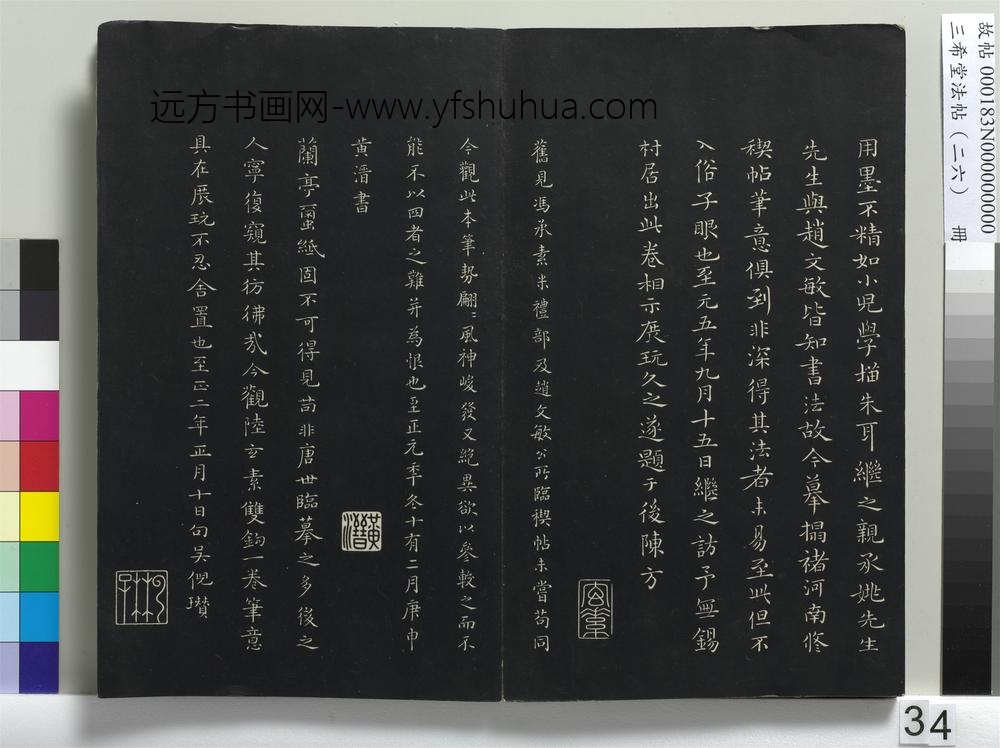 用墨不精如小兒學描朱耳繼之親承姚先生
先生與趙文敏皆知書法故今摹搨褚河南脩
禊帖筆意俱到非深得其法者未易至此但不
入俗子眼也至元五年九月十五日繼之訪予無錫
村居出此卷相示展玩久之遂題于後陳方
舊見馮承素米禮部及趙文敏公所臨禊帖未嘗苟同
今觀此本筆勢翩〻風神峻發又絶異欲以參較之而不
能不以四者之難并為恨也至正元年冬十有二月庚申
黃溍書
蘭亭蠒紙固不可得見苟非唐世臨摹之多後之
人寧復窺其彷彿哉今觀陸玄素雙鉤一卷筆意
具在展玩不忍舍置也至正二年正月十日句吳倪瓚
黃溍
远方书画网-www.yfshuhua.com
故帖 000183N000000000
三希堂法帖(二六) 冊
34